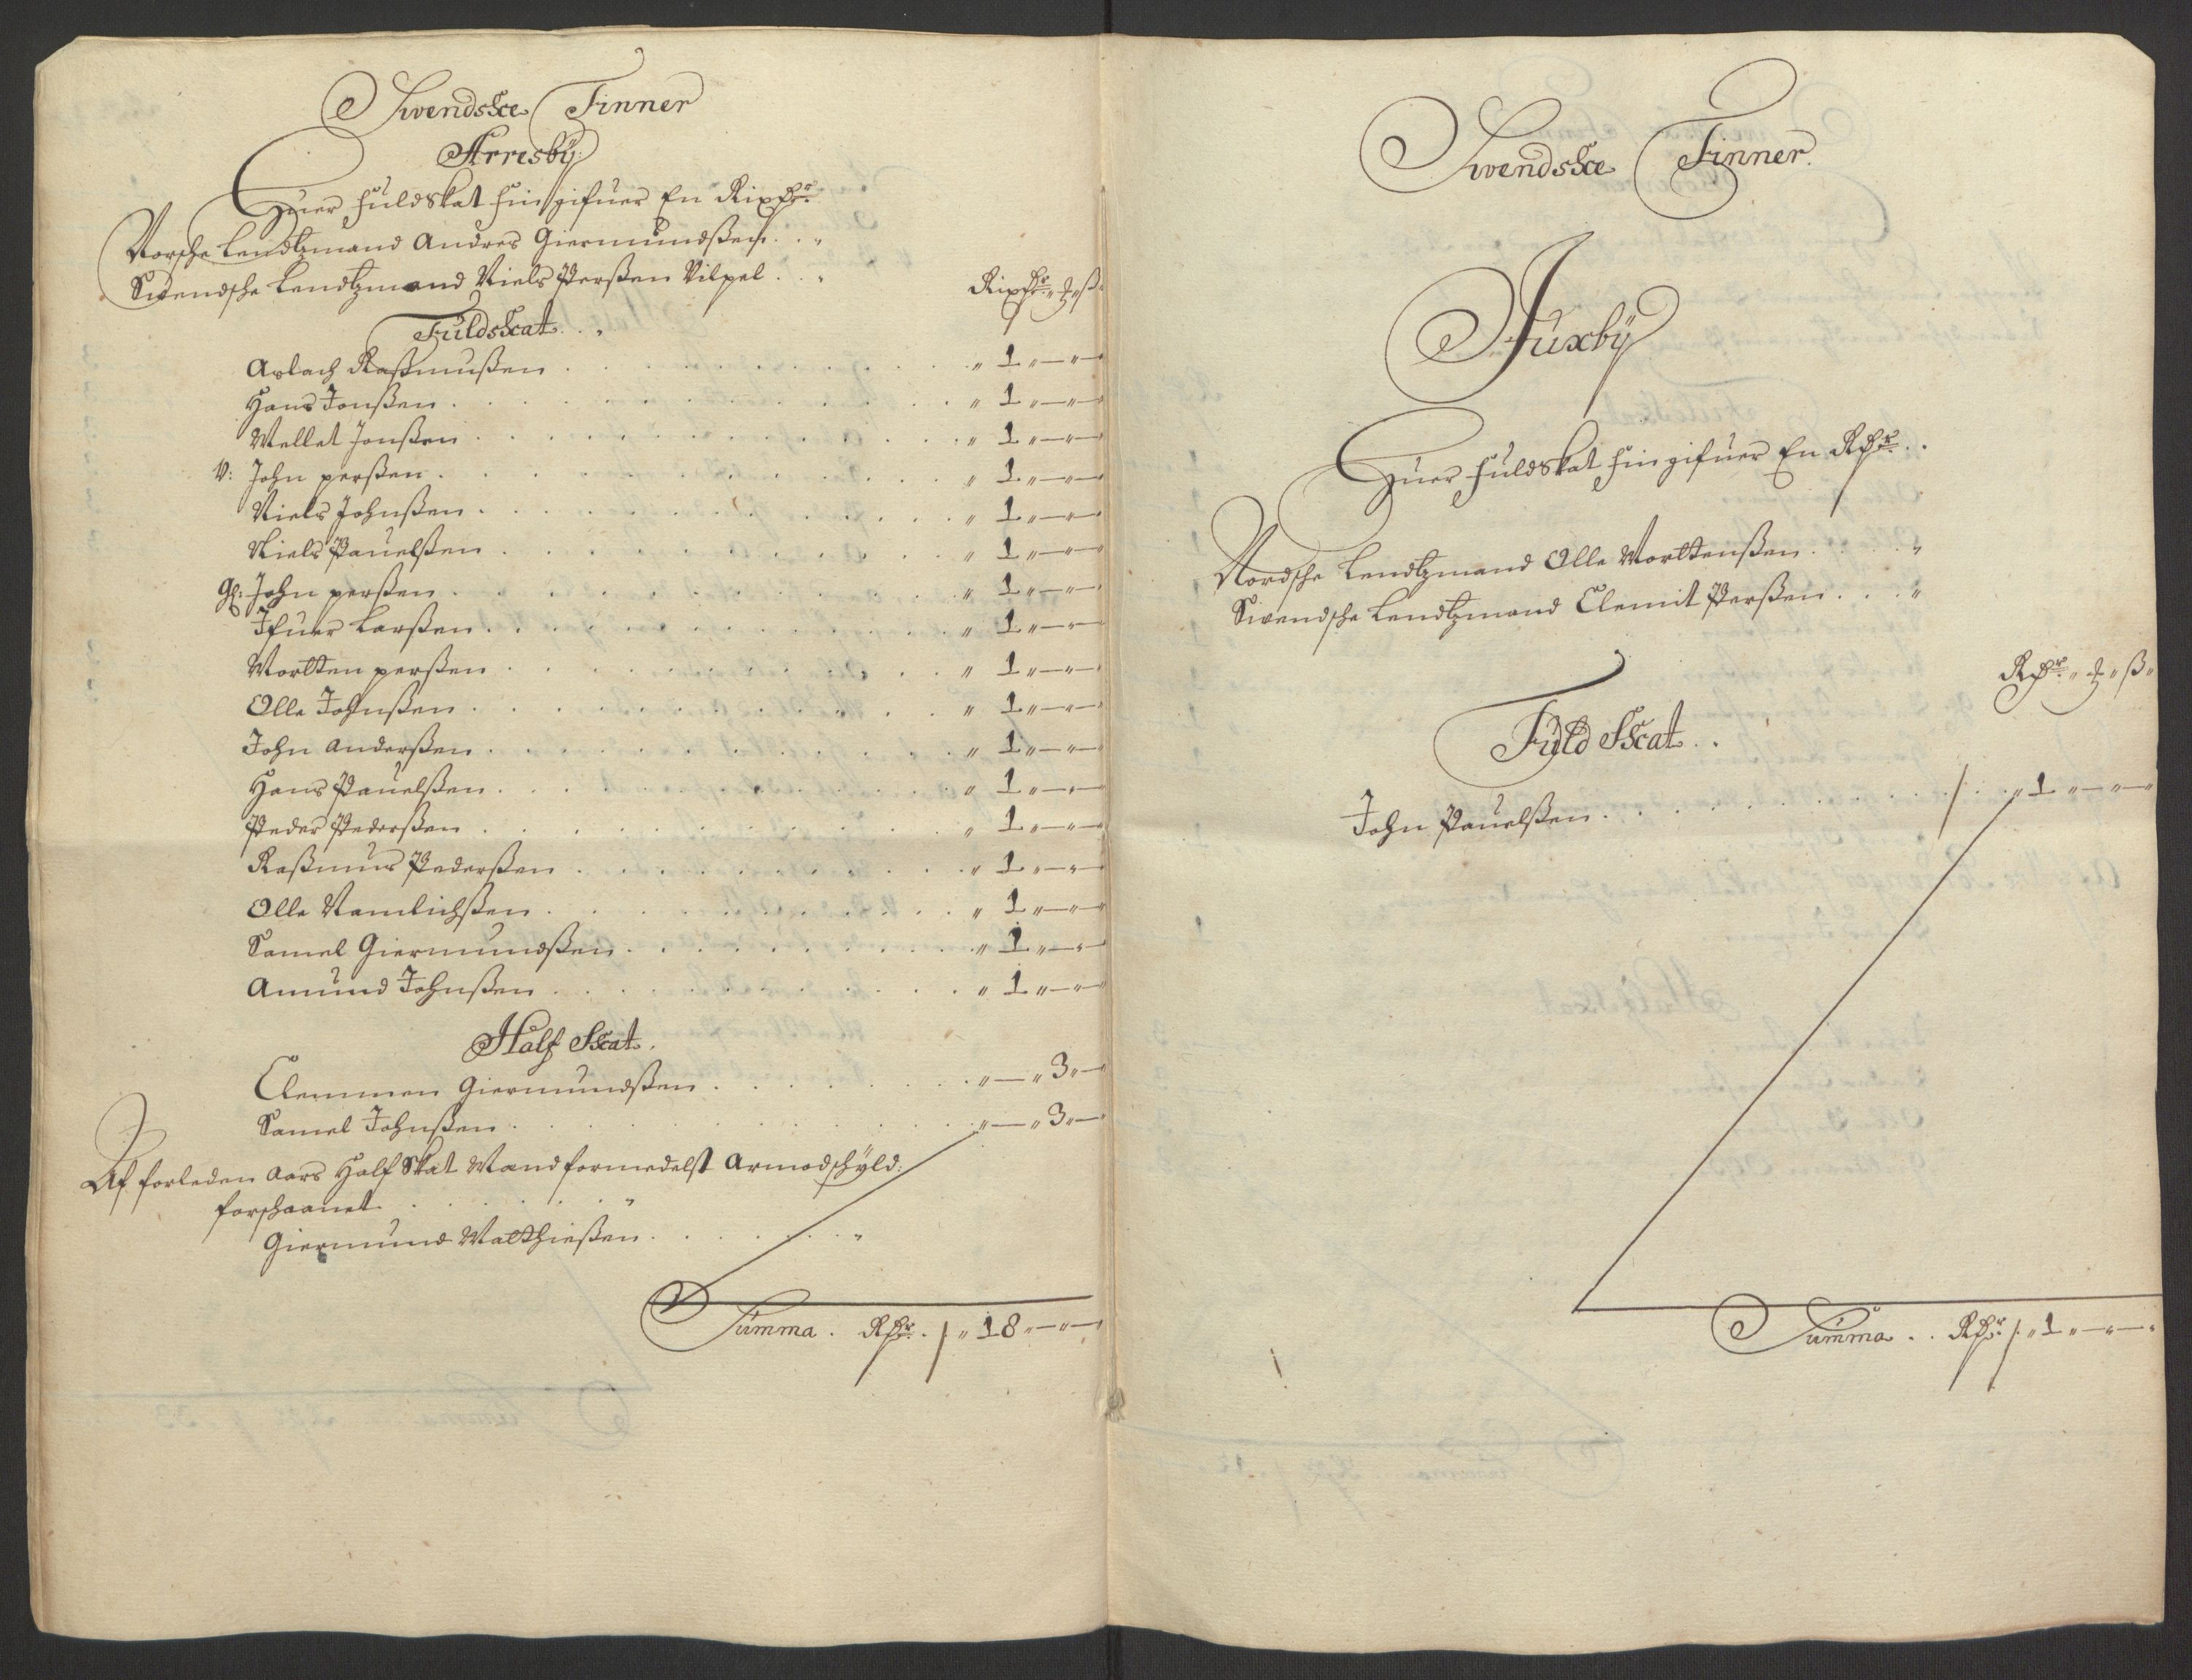 Swendske Finner
Arresby
Huer fuldskat hin gifuer En Rixdr
Norsche Lendtzmand Andres Giermundßen . . „
Swendsche Lendtzmand Niels Perßen Vilpel . „
Rixdr „ ß
Fuldskat . „
Aslach Raßmußen . . . „ 1 „ — „ —
Hans Jonßen . . . „ 1 „ — „ —
Mellet Jonßen . . . „ 1 „ — „ —
V: John perßen . . . „ 1 „ — „ —
Niels Johnßen . . . „ 1 „ — „ —
Niels Pauelßen . . . „ 1 „ — „ —
Gl: John perßen . . . „ 1 „ — „ —
Ifuer Larßen . . . „ 1 „ — „ —
Mortten perßen . . . „ 1 „ — „ —
Olle Johnßen . . . „ 1 „ — „ —
John Anderßen . . . „ 1 „ — „ —
Hans Pauelßen . . . „ 1 „ — „ —
Peder Pederßen . . . „ 1 „ — „ —
Raßmus Pederßen . . . „ 1 „ — „ —
Olle Namlichßen . . . „ 1 „ — „ —
Samel Giermundßen . . . „ 1 „ — „ —
Amund Johnßen . . . „ 1 „ — „ —
Half Skat.
Clemmen Giermundßen . . . „ — „ 3 „ —
Samel Johnßen . . . „ — „ 3 „ —
Af forleden Aars Half Skat Mand formedelst Armodschyld:
forschaanet . . . „
Giermund Matthießen . . . „
Summa . Rdr . / „ 18 „ — „ —
Swendske Finner.
Juxby
Huer fuldskat hin gifuer En Rdr . .
Nordsche Lendtzmand Olle Morttenßen . . . „
Swendsche Lendtzmand Clemit Perßen . . . „
Rdr „ ß „
Fuld Skat . .
John Pauelßen . . . / . . „ 1 „ — „ —
Summa . . Rdr / „ 1 „ — „ —